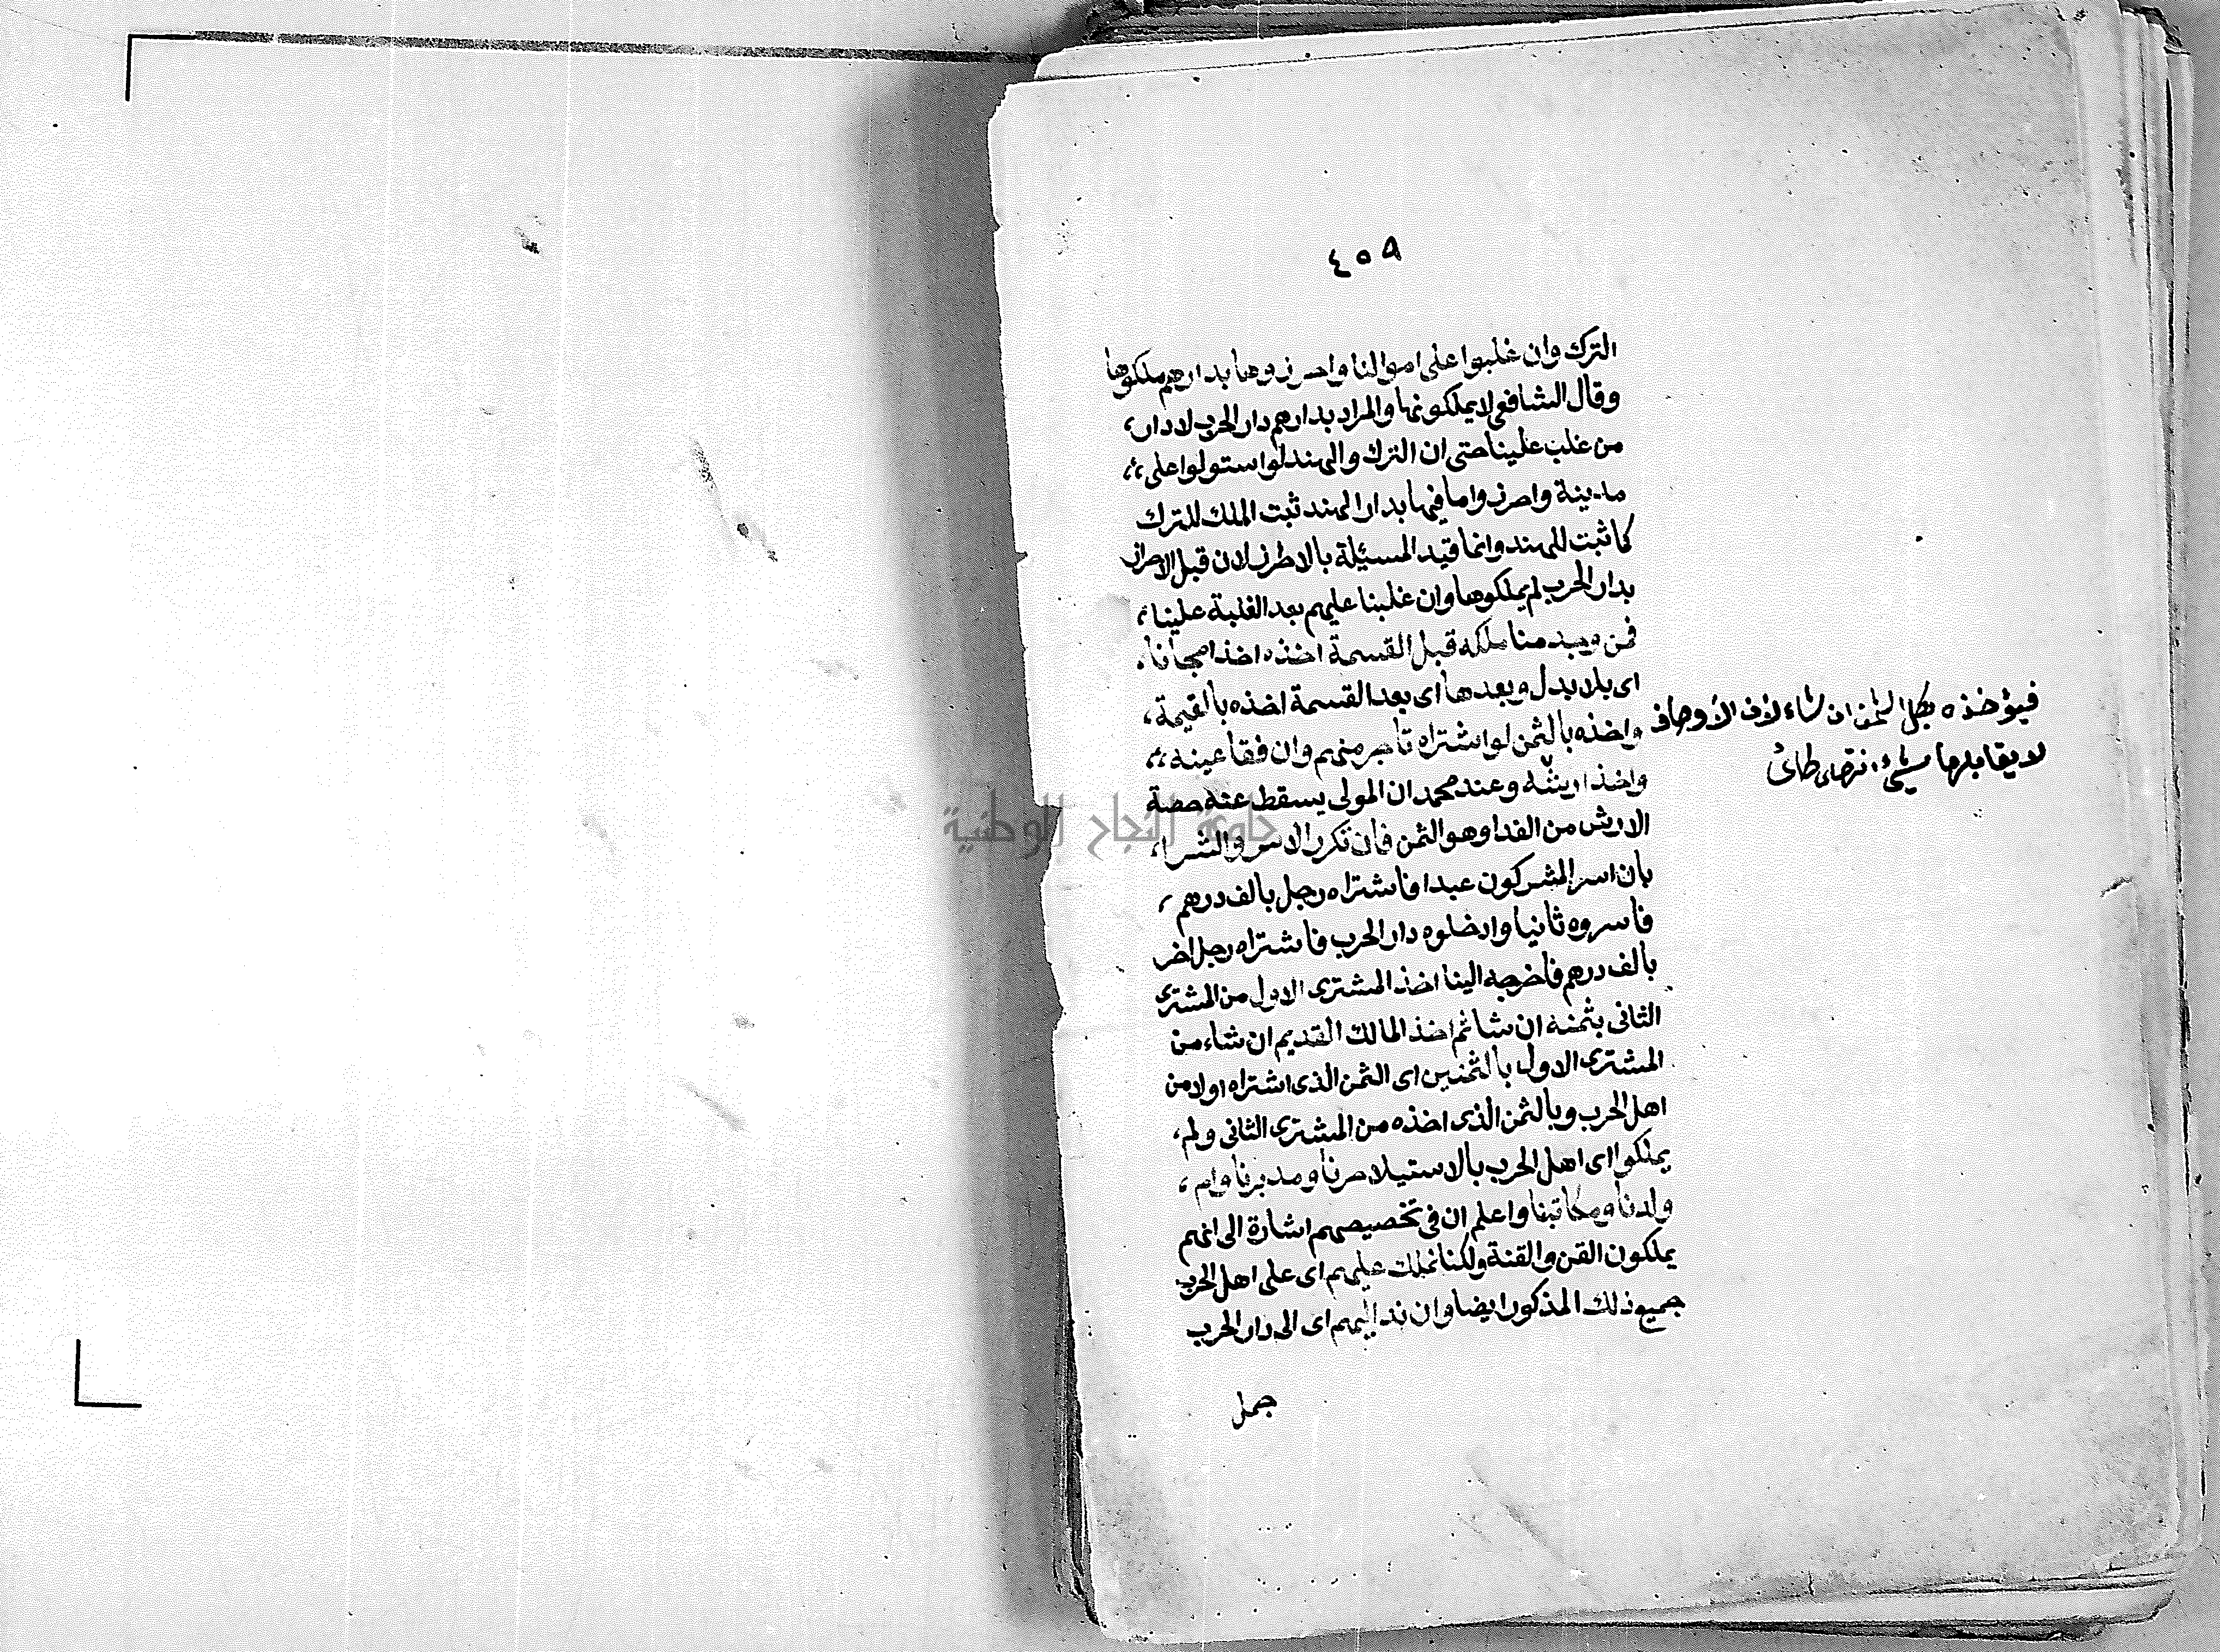 ٤٥٩
الترك وان غلبوا على اموالنا واحرزوها بدارهم ملكوها
وقال الشافعى لا يملكونها والمراد بدارهم دار الحرب لا دار،
من غلب علينا حتى ان الترك والهند لو استولوا على،،
مدينة واحرزوا ما فيها بدار الهند ثبت الملك للترك
كما ثبت للهند وانما قيد المسئلة بالاحراز لان قبل الاحراز
بدار الحرب لم يملكوها وان غلبنا عليهم بعد الغلبة علينا،
فمن وجد منا ملكه قبل القسمة اخذه اخذا مجانا،
اى بلا بدل وبعدها اى بعد القسمة اخذه بالقيمة،
واخذه بالثمن لو اشتراه تاجر منهم وان فقا عينه،،
واخذ ارشه وعند محمد ان المولى يسقط عنه حصة
الارش من الفدا وهو الثمن فان تكرر الاسر والشرا،
بان اسر المشركون عبدا فاشتراه رجل بالف درهم،
فاسروه ثانيا وادخلوه دار الحرب فاشتراه رجل اخر
بالف درهم فاخرجه الينا اخذ المشترى الاول من المشترى
الثانى بثمنه ان شا ثم اخذ المالك القديم ان شاء من
المشترى الاول بالثمنين اى الثمن الذى اشتراه اولا من
اهل الحرب وبالثمن الذى اخذه من المشترى الثانى ولم،
يملكوا اى اهل الحرب بالاستيلا حرنا ومدبرنا وام،
ولدنا ومكاتبنا واعلم ان فى تخصيصهم اشارة الى انهم
يملكون القن والقنة ولكنا نملك عليهم اى على اهل الحرب
جميع ذلك المذكور ايضا وان ند اليهم اى الى دار الحرب
جمل
فيؤخذه بكل الثمن ان شاء لان الأوصاف
لا يقابلها شئ انتهى طائى
جامعة النجاح الوطنية